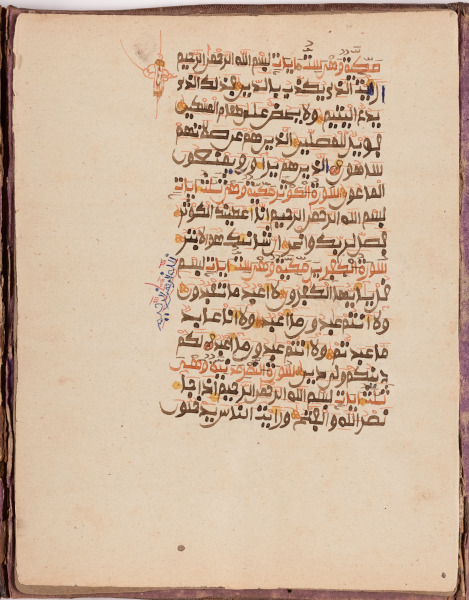 مكية وهي ست ايات بسم الله الرحمن الرحيم
اريت الذي يكذب بالدين فذلك الذي
يدع اليتيم ولا يحض على طعام المسكين
فويل للمصلين الذين هم عن صلاتهم
ساهون الذين هم يراون ويمنعون
الماعون سورة الكوثر مكية وهي ثلث ايات
بسم الله الرحمن الرحيم انا اعطينك الكوثر
فصل لربك وانحر ان شانيك هو الابتر
سورة الكفرين مكية وهي ست ايات بسم
الله الرحمن الرحيم
قل يايها الكفرون لا اعبد ما تعبدون
ولا انتم عبدون ما اعبد ولا انا عابد
ما عبدتم ولا انتم عبدون ما اعبد لكم
دينكم ولي دين سورة النصر مدنية وهي
ثلث ايات بسم الله الرحمن الرحيم اذا جا
نصر الله والفتح ورايت الناس يدخلون